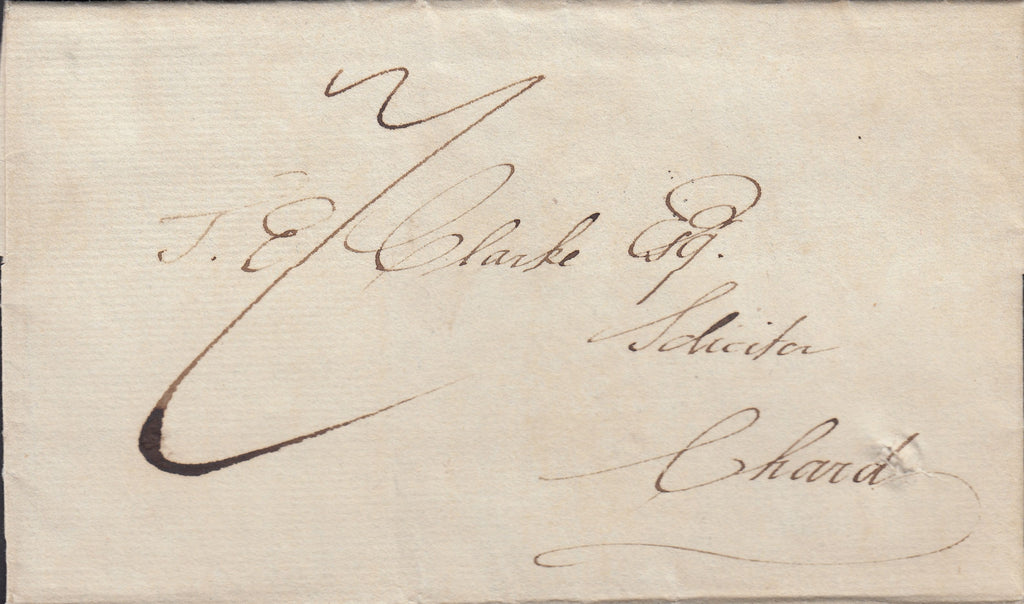 7
T. E. Clarke Esq.
Solicitor
Chard